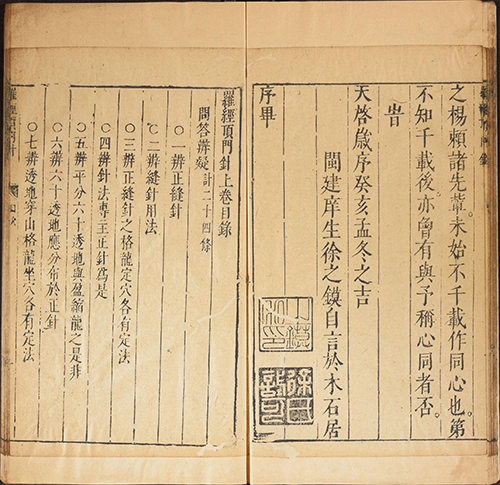 之楊賴諸先輩未始不千載作同心也第
不知千載後亦曾有與予稱心同者否
旹
天啓歲序癸亥孟冬之吉
閩建庠生徐之鏌自言於木石居
序畢
羅經頂門針上卷目錄
問答辨疑計二十四條
○一辨正縫針
○二辨縫針用法
○三辨正縫針之格龍定穴各有定法
○四辨針法專主正針爲是
○五辨平分六十透地與盈縮龍之是非
○六辨六十透地應分布於正針
○七辨透地穿山格龍坐穴各有定法